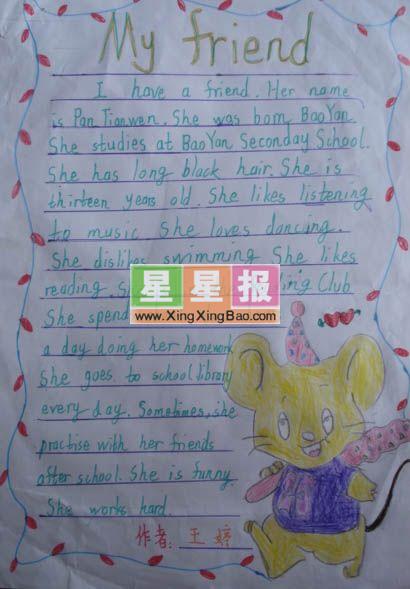 My friend
I have a friend. Her name
is Pan Tianwen. She was born BaoYan.
She studies at BaoYan Seconday School.
She has long black hair. She is
thirteen years old. She likes listening
to music She loves dancing.
She dislikes swimming She likes
reading. Club
She spend
星星报
www.XingXingBao.com
a day doing her homework
She goes to school library
every day. Sometimes, she
practise with her friends
after school. She is funny.
She works hard.
作者: 王婷